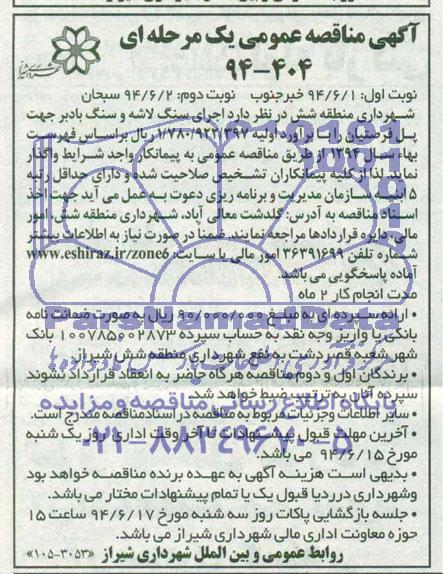 آگهی مناقصه عمومی یک مرحله ای
۹۴-۴۰۴
نوبت اول: ۹۴/۶/۱ خبرجنوب نوبت دوم: ۹۴/۶/۲ سبحان
شهرداری منطقه شش در نظر دارد اجرای سنگ لاشه و سنگ بادبر جهت
پل فرصتیان را با برآورد اولیه ۱/۷۸۰/۹۲۲/۳۹۷ ریال بر اساس فهرست
بهاء سال ۱۳۹۴ از طریق مناقصه عمومی به پیمانکار واجد شرایط واگذار
نماید. لذا از کلیه پیمانکاران تشخیص صلاحیت شده و دارای حداقل رتبه
۵ ابنیه سازمان مدیریت و برنامه ریزی دعوت به عمل می آید جهت اخذ
اسناد مناقصه به آدرس: گلدشت معالی آباد، شهرداری منطقه شش، امور
مالی، دایره قراردادها مراجعه نمایند. ضمنا در صورت نیاز به اطلاعات بیشتر
شماره تلفن ۳۶۳۹۱۶۹۹ امور مالی یا سایت: www.eshiraz.ir/zone6
آماده پاسخگویی می باشد.
مدت انجام کار ۲ ماه
• ارائه سپرده ای به مبلغ ۹۰/۰۰۰/۰۰۰ ریال به صورت ضمانت نامه
بانکی یا واریز وجه نقد به حساب سپرده ۱۰۰۷۸۵۰۰۲۸۷۳ بانک
شهر شعبه قصردشت به نفع شهرداری منطقه شش شیراز.
• برندگان اول و دوم مناقصه هرگاه حاضر به انعقاد قرارداد نشوند
سپرده آنان به ترتیب ضبط خواهد شد.
• سایر اطلاعات و جزئیات مربوط به مناقصه در اسناد مناقصه مندرج است.
• آخرین مهلت قبول پیشنهادات تا آخر وقت اداری روز یک شنبه
مورخ ۹۴/۶/۱۵ می باشد.
• بدیهی است هزینه آگهی به عهده برنده مناقصه خواهد بود
وشهرداری در رد یا قبول یک یا تمام پیشنهادات مختار می باشد.
• جلسه بازگشایی پاکات روز سه شنبه مورخ ۹۴/۶/۱۷ ساعت ۱۵
حوزه معاونت اداری مالی شهرداری شیراز می باشد.
روابط عمومی و بین الملل شهرداری شیراز «۱۰۵-۳۰۵۳»
ParsNamadData
پایگاه اطلاع رسانی مناقصه و مزایده
۰۲۱-۸۸۳۴۹۶۷۰-۵